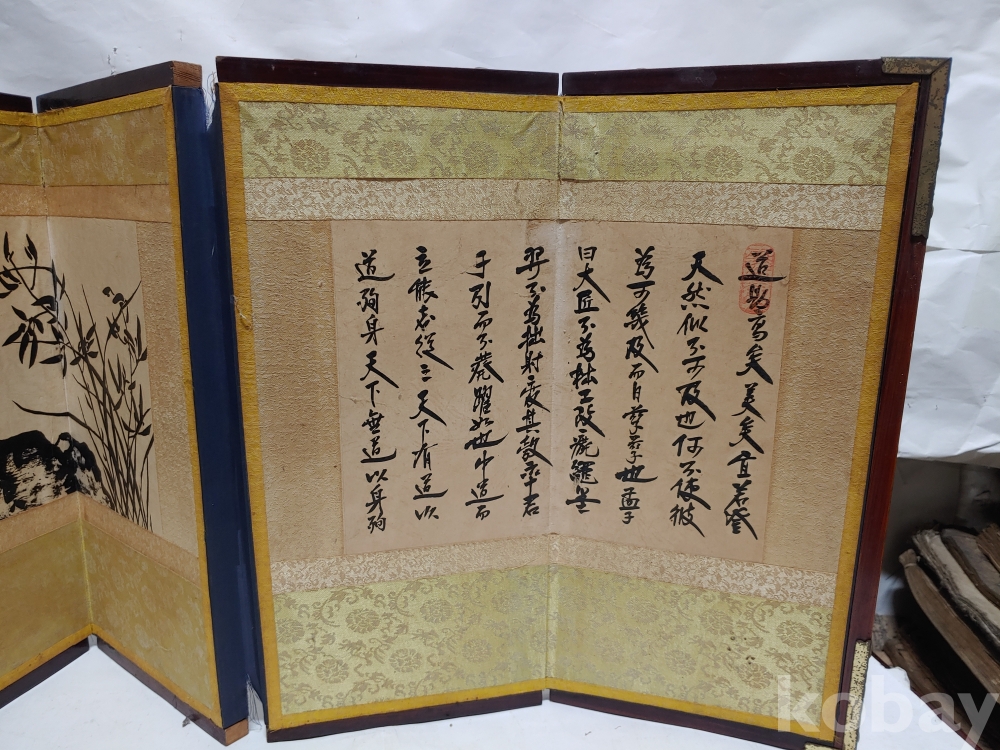 道則高矣美矣宜若登
天然似不可及也何不使彼
為可幾及而日孶孶也孟子
曰大匠不為拙工改廢繩墨
羿不為拙射變其彀率君
子引而不發躍如也中道而
立能者從之天下有道以
道殉身天下無道以身殉
kobay